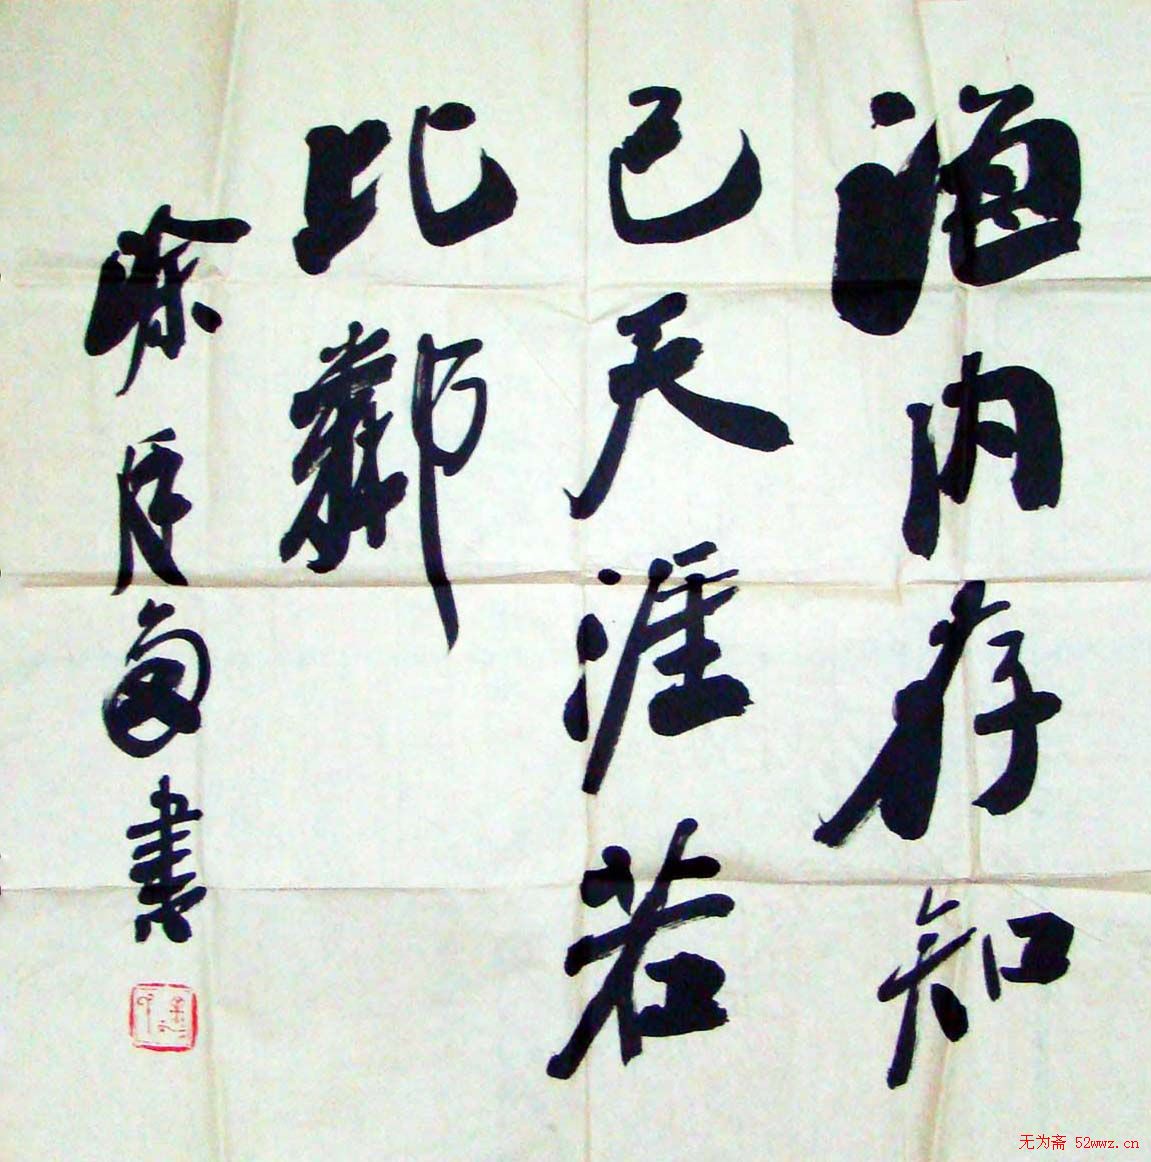 海内存知
己天涯若
比鄰
書
无为斋 52wwz.cn